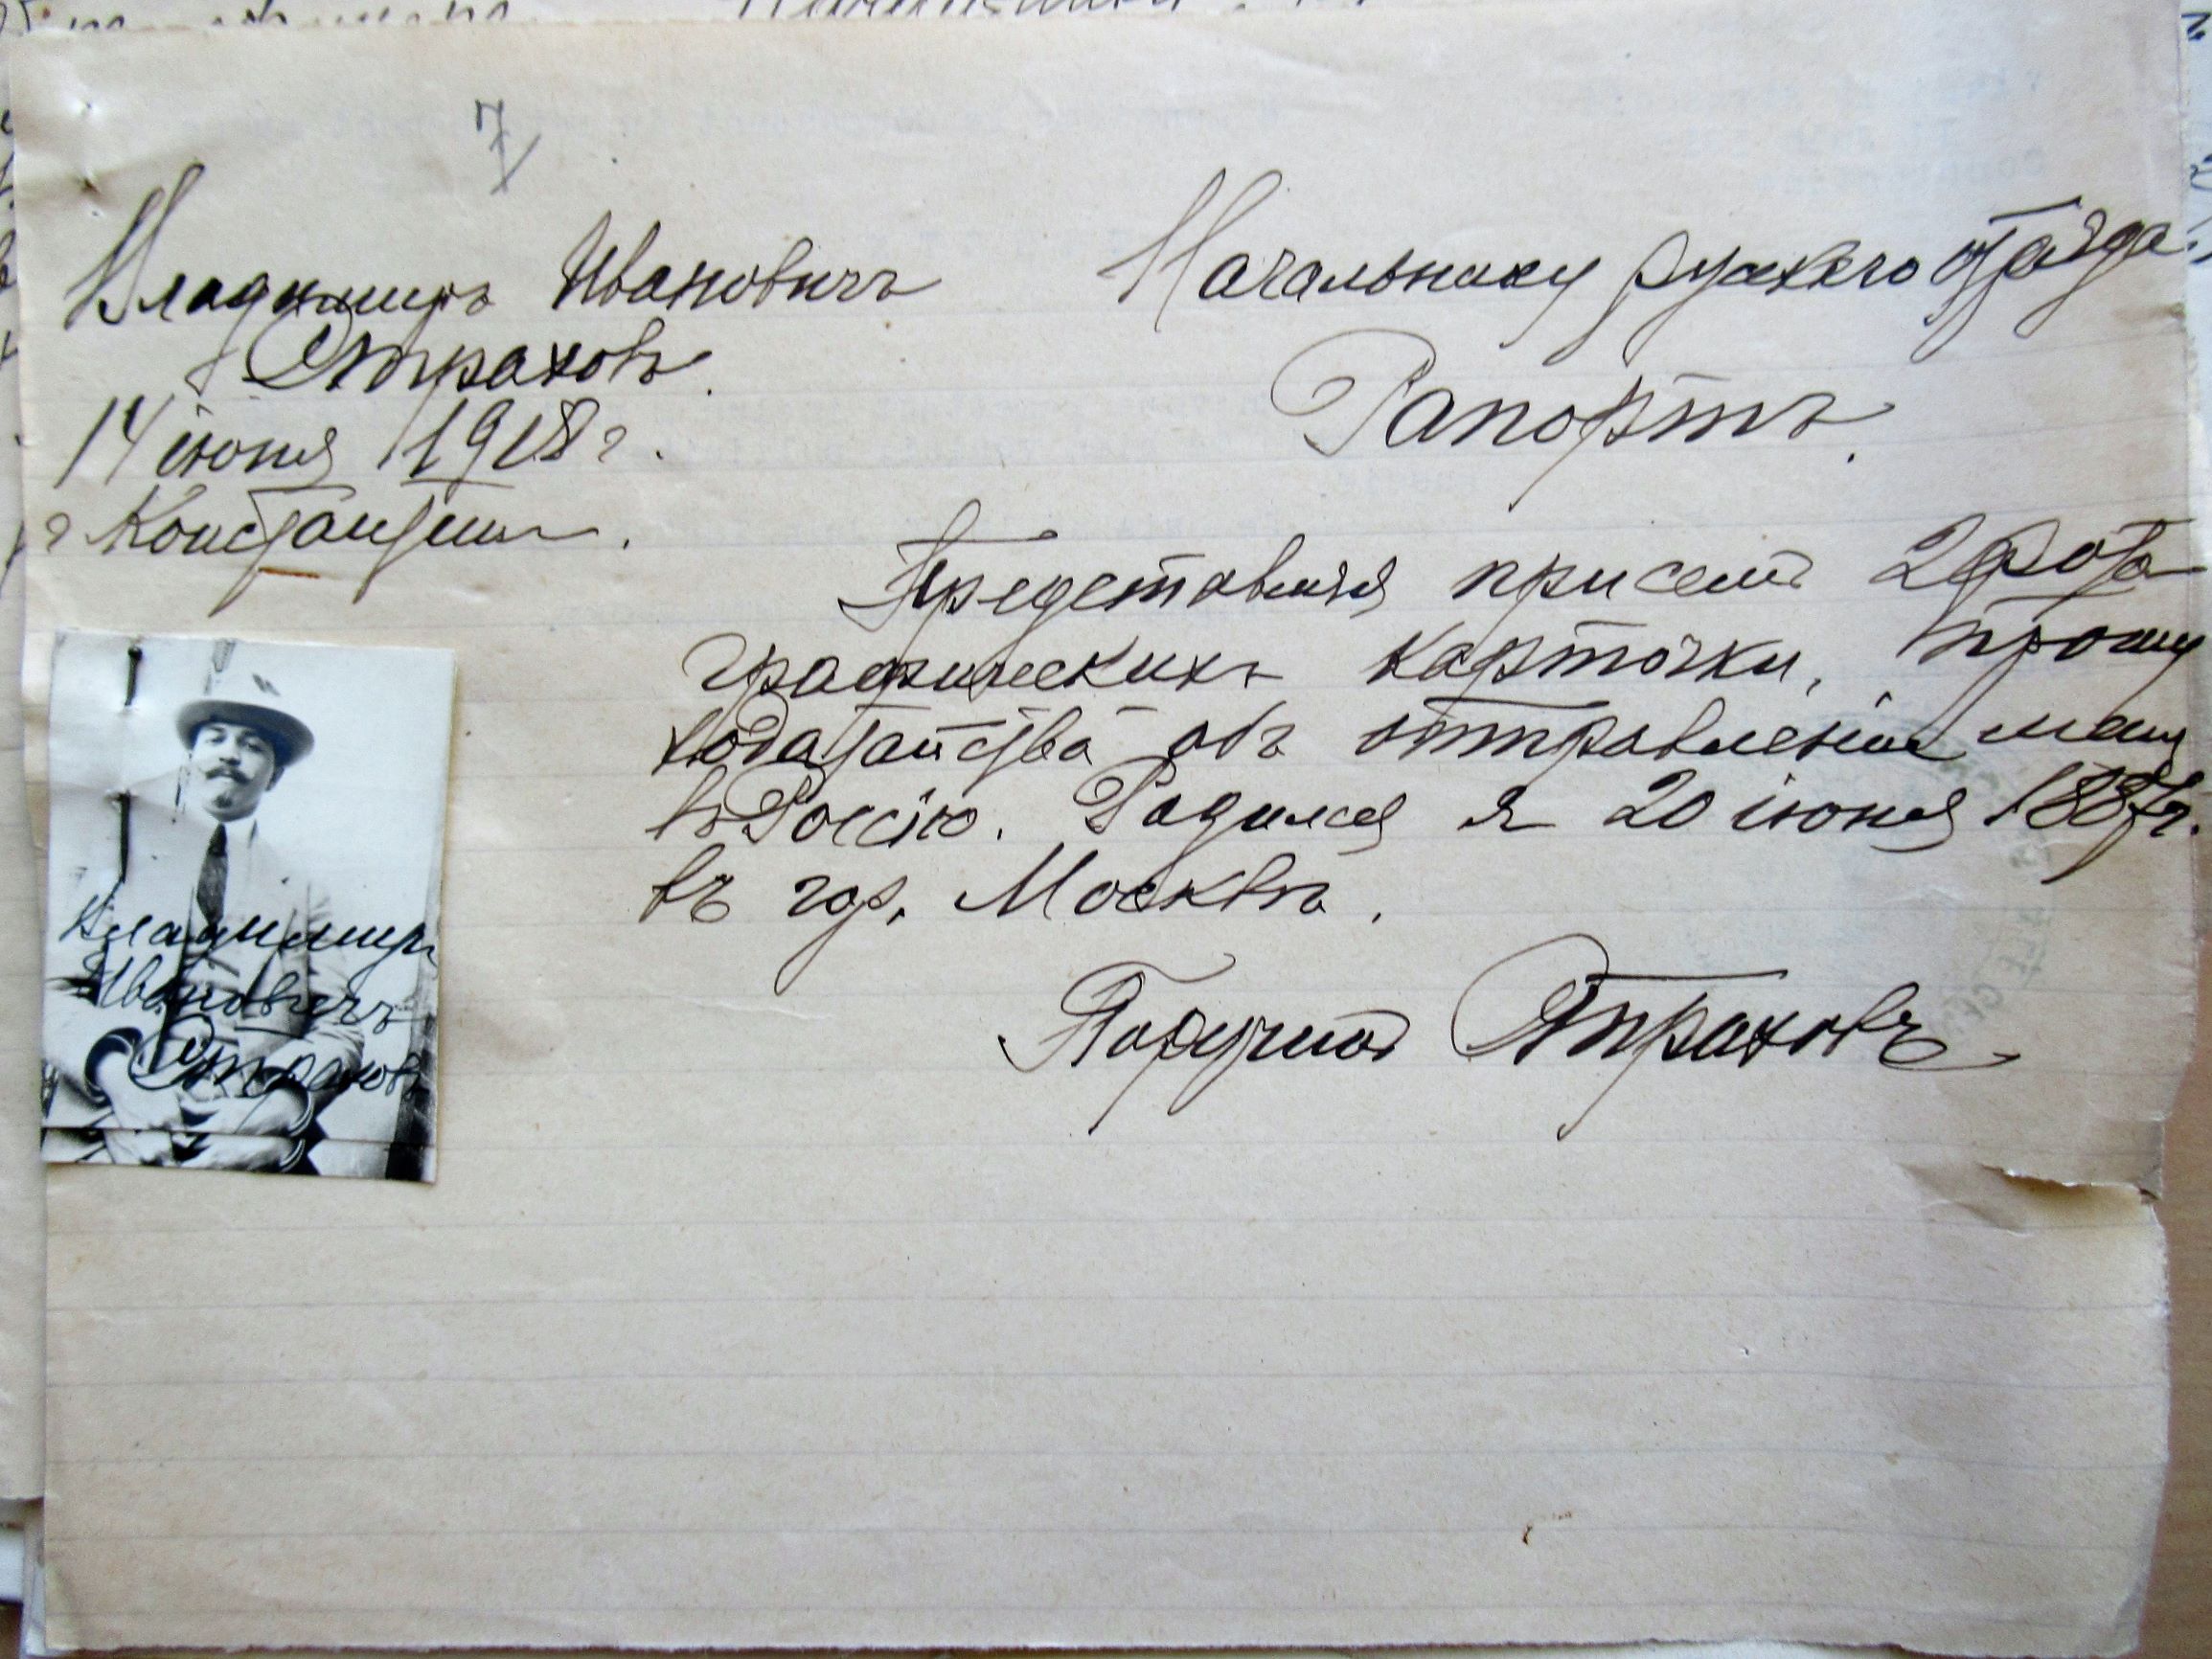 7
Владимиръ Ивановичъ
Страховъ.
14 іюня 1918 г.
г Константин .
Начальнику русскаго отряда.
Рапортъ.
Представляя при семъ 2 фото
графическихъ карточки, прошу
ходатайства объ отправленіи меня
въ Россію. Родился я 20 іюня 1887 г.
въ гор. Москвѣ.
Поручикъ Страховъ
Владимиръ
Ивановичъ
Страховъ